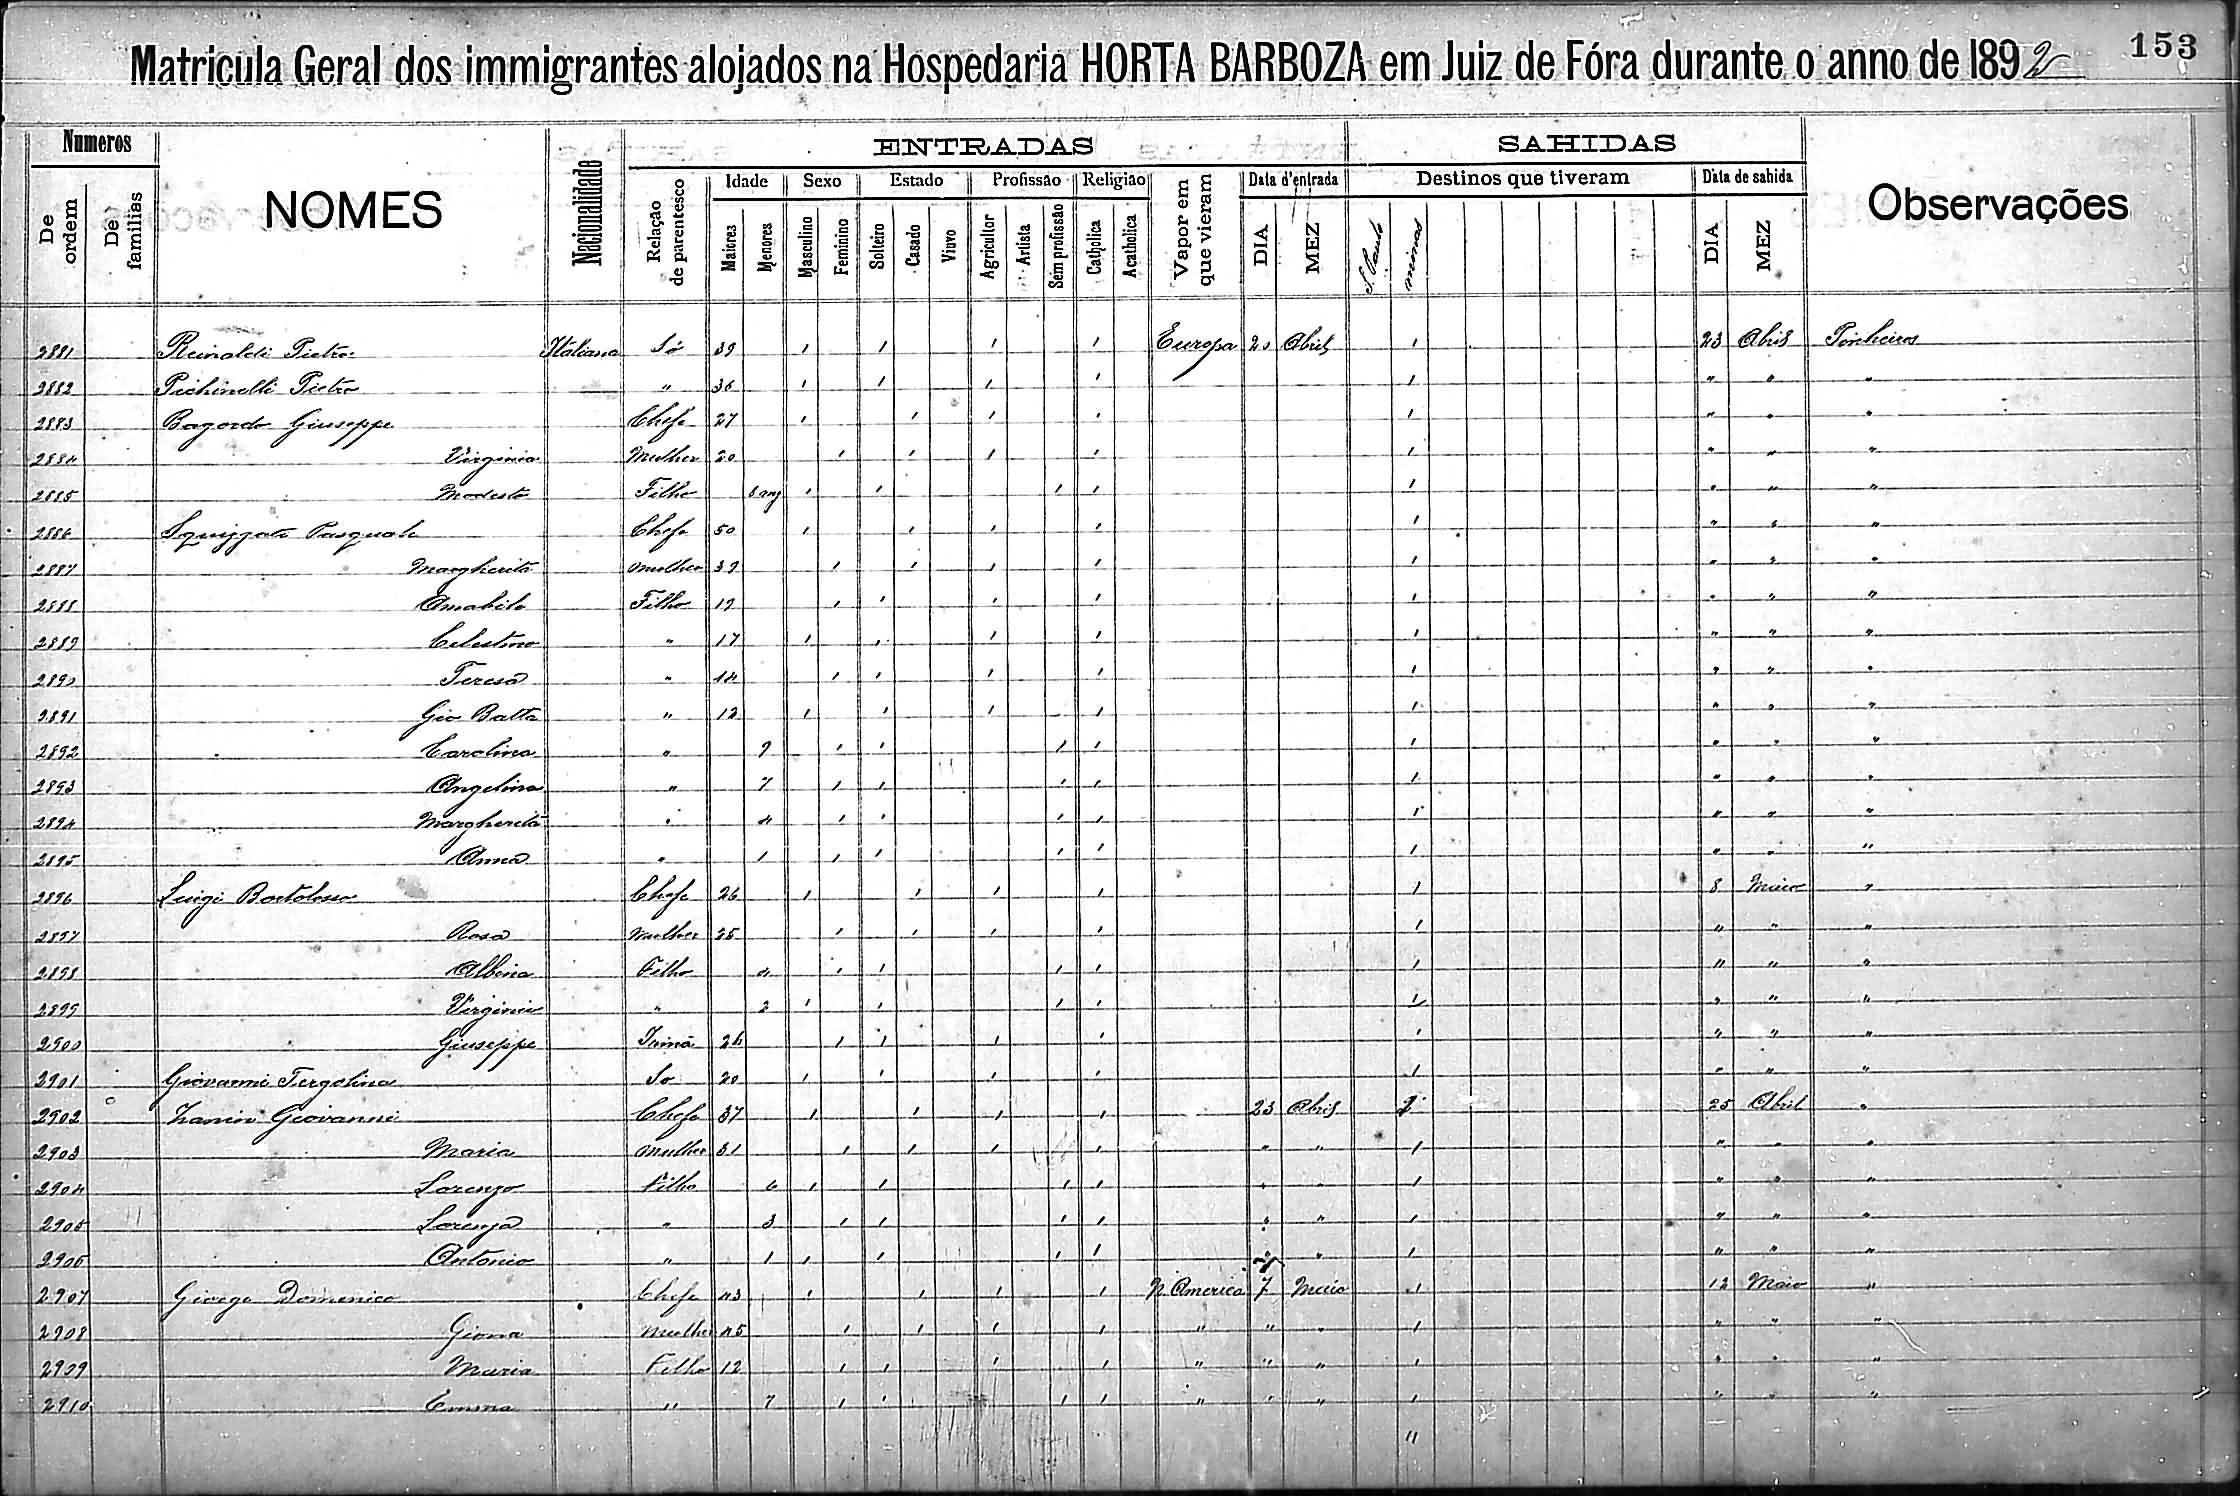 153
Matricula Geral dos immigrantes alojados na Hospedaria HORTA BARBOZA em Juiz de Fóra durante o anno de 1892
Numeros ENTRADAS SAHIDAS
De ordem De familias NOMES Nacionalidade Relação de parentesco Idade Sexo Estado Profissão Religião Vapor em que vieram Data d'entrada Destinos que tiveram Data de sahida Observações
Maiores Menores Masculino Feminino Solteiro Casado Viuvo Agricultor Artista Sem profissão Catholica Acatholica DIA MEZ S. Paulo minas DIA MEZ
2881 Reinaldi Pietro Italiana Só 39 1 1 1 1 Europa 20 Abril 1 23 Abril
2882 Pichinelli Pietro " 36 1 1 1 1 1 " " "
2883 Bagordo Giuseppe Chefe 27 1 1 1 1 1 " " "
2884 Virginia Mulher 20 1 1 1 1 1 " " "
2885 Modesto Filho 1 1 1 1 1 " " "
2886 Squizzato Pasquale Chefe 50 1 1 1 1 1 " " "
2887 Margherita mulher 39 1 1 1 1 1 " " "
2888 Amabile Filho 19 1 1 1 1 1 " " "
2889 Celestino " 17 1 1 1 1 1 " " "
2890 Teresa " 14 1 1 1 1 1 " " "
2891 Gio Batta " 12 1 1 1 1 1 " " "
2892 Carolina " 9 1 1 1 1 1 " " "
2893 Angelina " 7 1 1 1 1 1 " " "
2894 Margherita " 4 1 1 1 1 1 " " "
2895 Anna " 1 1 1 1 1 1 " " "
2896 Luigi Bortolosso Chefe 26 1 1 1 1 1 8 Maio "
2897 Rosa mulher 25 1 1 1 1 1 " " "
2898 Albina Filho 4 1 1 1 1 1 " " "
2899 Virginio " 2 1 1 1 1 1 " " "
2900 Giuseppe Irmã 26 1 1 1 1 1 " " "
2901 Giovanni Tergolina So 20 1 1 1 1 1 " " "
2902 Zanin Giovanni Chefe 37 1 1 1 1 23 Abril 1 25 Abril "
2903 Maria mulher 31 1 1 1 1 " " 1 " " "
2904 Lorenzo Filho 6 1 1 1 1 " " 1 " " "
2905 Lorenza " 3 1 1 1 1 " " 1 " " "
2906 Antonio " 1 1 1 1 1 " " 1 " " "
2907 Giorgo Domenico Chefe 43 1 1 1 1 N. America 7 Maio 1 12 Maio "
2908 Giona Mulher 45 1 1 1 1 " " " 1 " " "
2909 Maria Filho 12 1 1 1 1 " " " 1 " " "
2910 Emma " 7 1 1 1 1 " " " 1 " " "
"